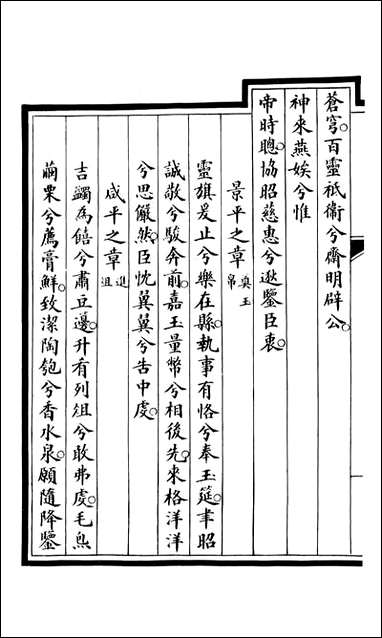 蒼穹。百靈祇衞兮齋明辟公。
神來燕娭兮惟
帝時聰。協昭慈惠兮逖鑒臣衷。
景平之章奠玉帛
靈旗爰止兮樂在縣。執事有恪兮奉玉筵。聿昭
誠敬兮駿奔前。嘉玉量幣兮相後先。來格洋洋
兮思儼然。臣忱翼翼兮告中虔。
咸平之章進俎
吉蠲為饎兮肅豆籩。升肴列俎兮敢弗虔。毛炰
繭栗兮薦膏鮮。致潔陶匏兮香水泉。願隨降鑒